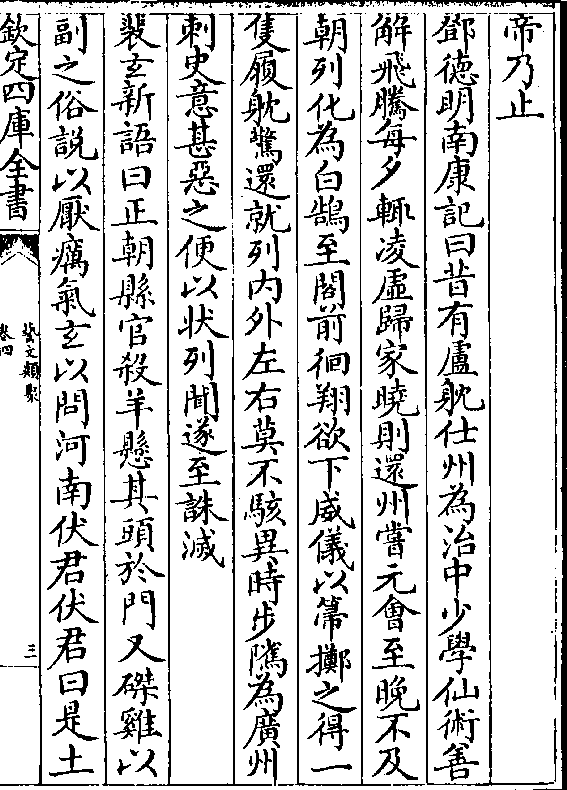 帝乃止
鄧德明南康記曰昔有盧躭仕州為治中少學仙術善
解飛騰每夕輒凌虛歸家曉則還州嘗元會至晚不及
朝列化為白鵠至閣前徊翔欲下威儀以箒擲之得一
隻履躭驚還就列内外左右莫不駭異時步隲為廣州
刺史意甚惡之便以状列聞遂至誅滅
裴玄新語曰正朝縣官殺羊懸其頭於門又磔雞以
副之俗說以厭癘氣玄以問河南伏君伏君曰是土
欽定四庫全書
藝文類聚
卷四
三